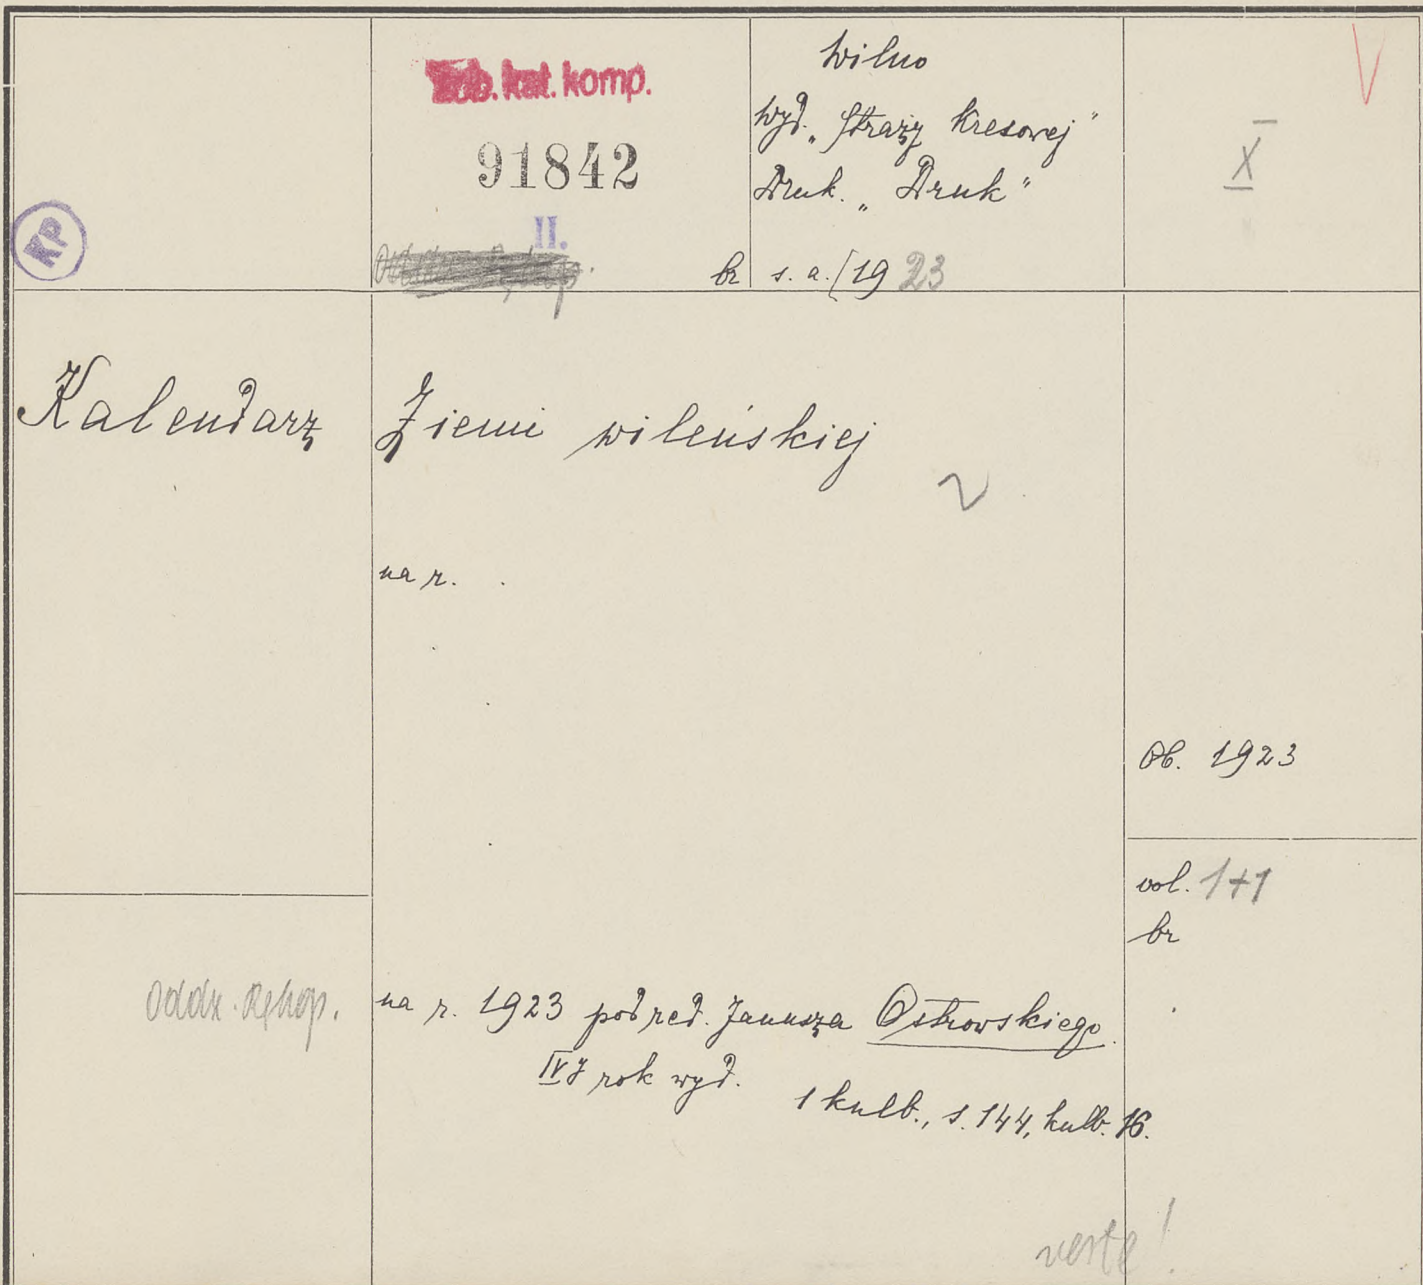 Zob. kat. komp.
91842
II.
KP
Wilno
Wyd. „Straży Kresowej"
Druk. „Druk"
br s. a. [19 23
X
Kalendarz Ziemi wileńskiej
na r.
Ob. 1923
vol. 1+1
br
Oddz. Rękop.
na r. 1923 pod red. Janusza Ostrowskiego.
IV rok wyd.
1 knlb., s. 144, knlb. 16.
verte!